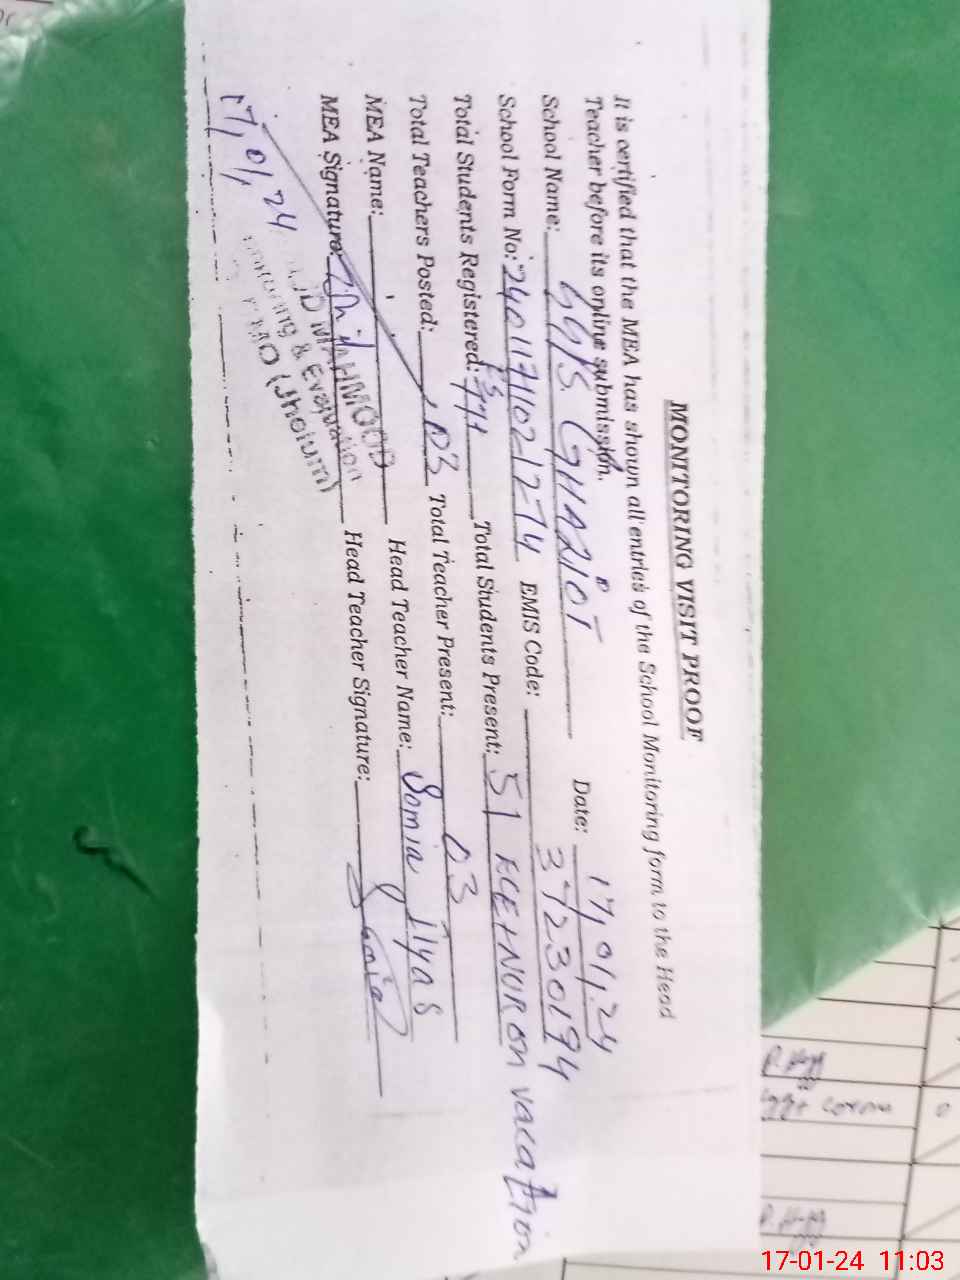 MONITORING VISIT PROOF
It is certified that the MEA has shown all entries of the School Monitoring form to the Head
Teacher before its online submission.
School Name: GGPS GHAZIOT Date: 17,01,24
School Form No: 2401171102-1274 EMIS Code: 37230194
Total Students Registered: Total Students Present: 51 ECE+NUR on vacation
Total Teachers Posted: 03 Total Teacher Present: 03
MEA Name: Head Teacher Name: Somia Ilyas
MEA Signature: Head Teacher Signature: Somia
17,01,24
MAHMOOD
& Evaluation
(Jhelum)
17-01-24 11:03